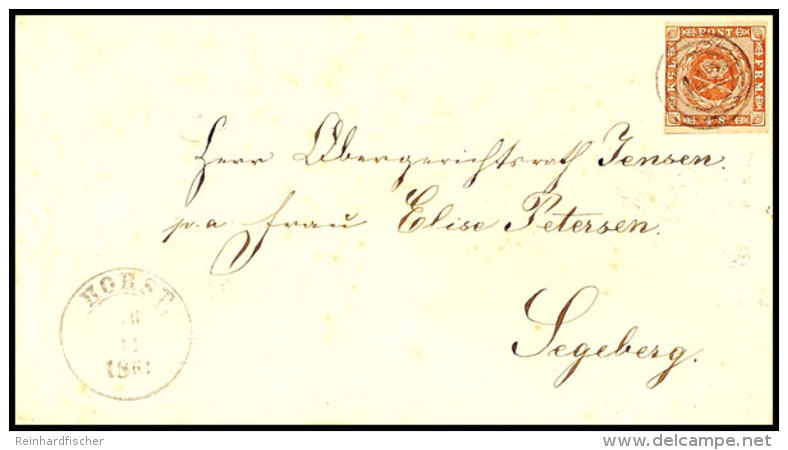 KGL
POST
FRM
4 S
Herr Obergerichtsrath Jensen.
p.a Frau Elise Petersen.
Segeberg.
HORST.
11
Reinhardfischer
www.delcampe.net